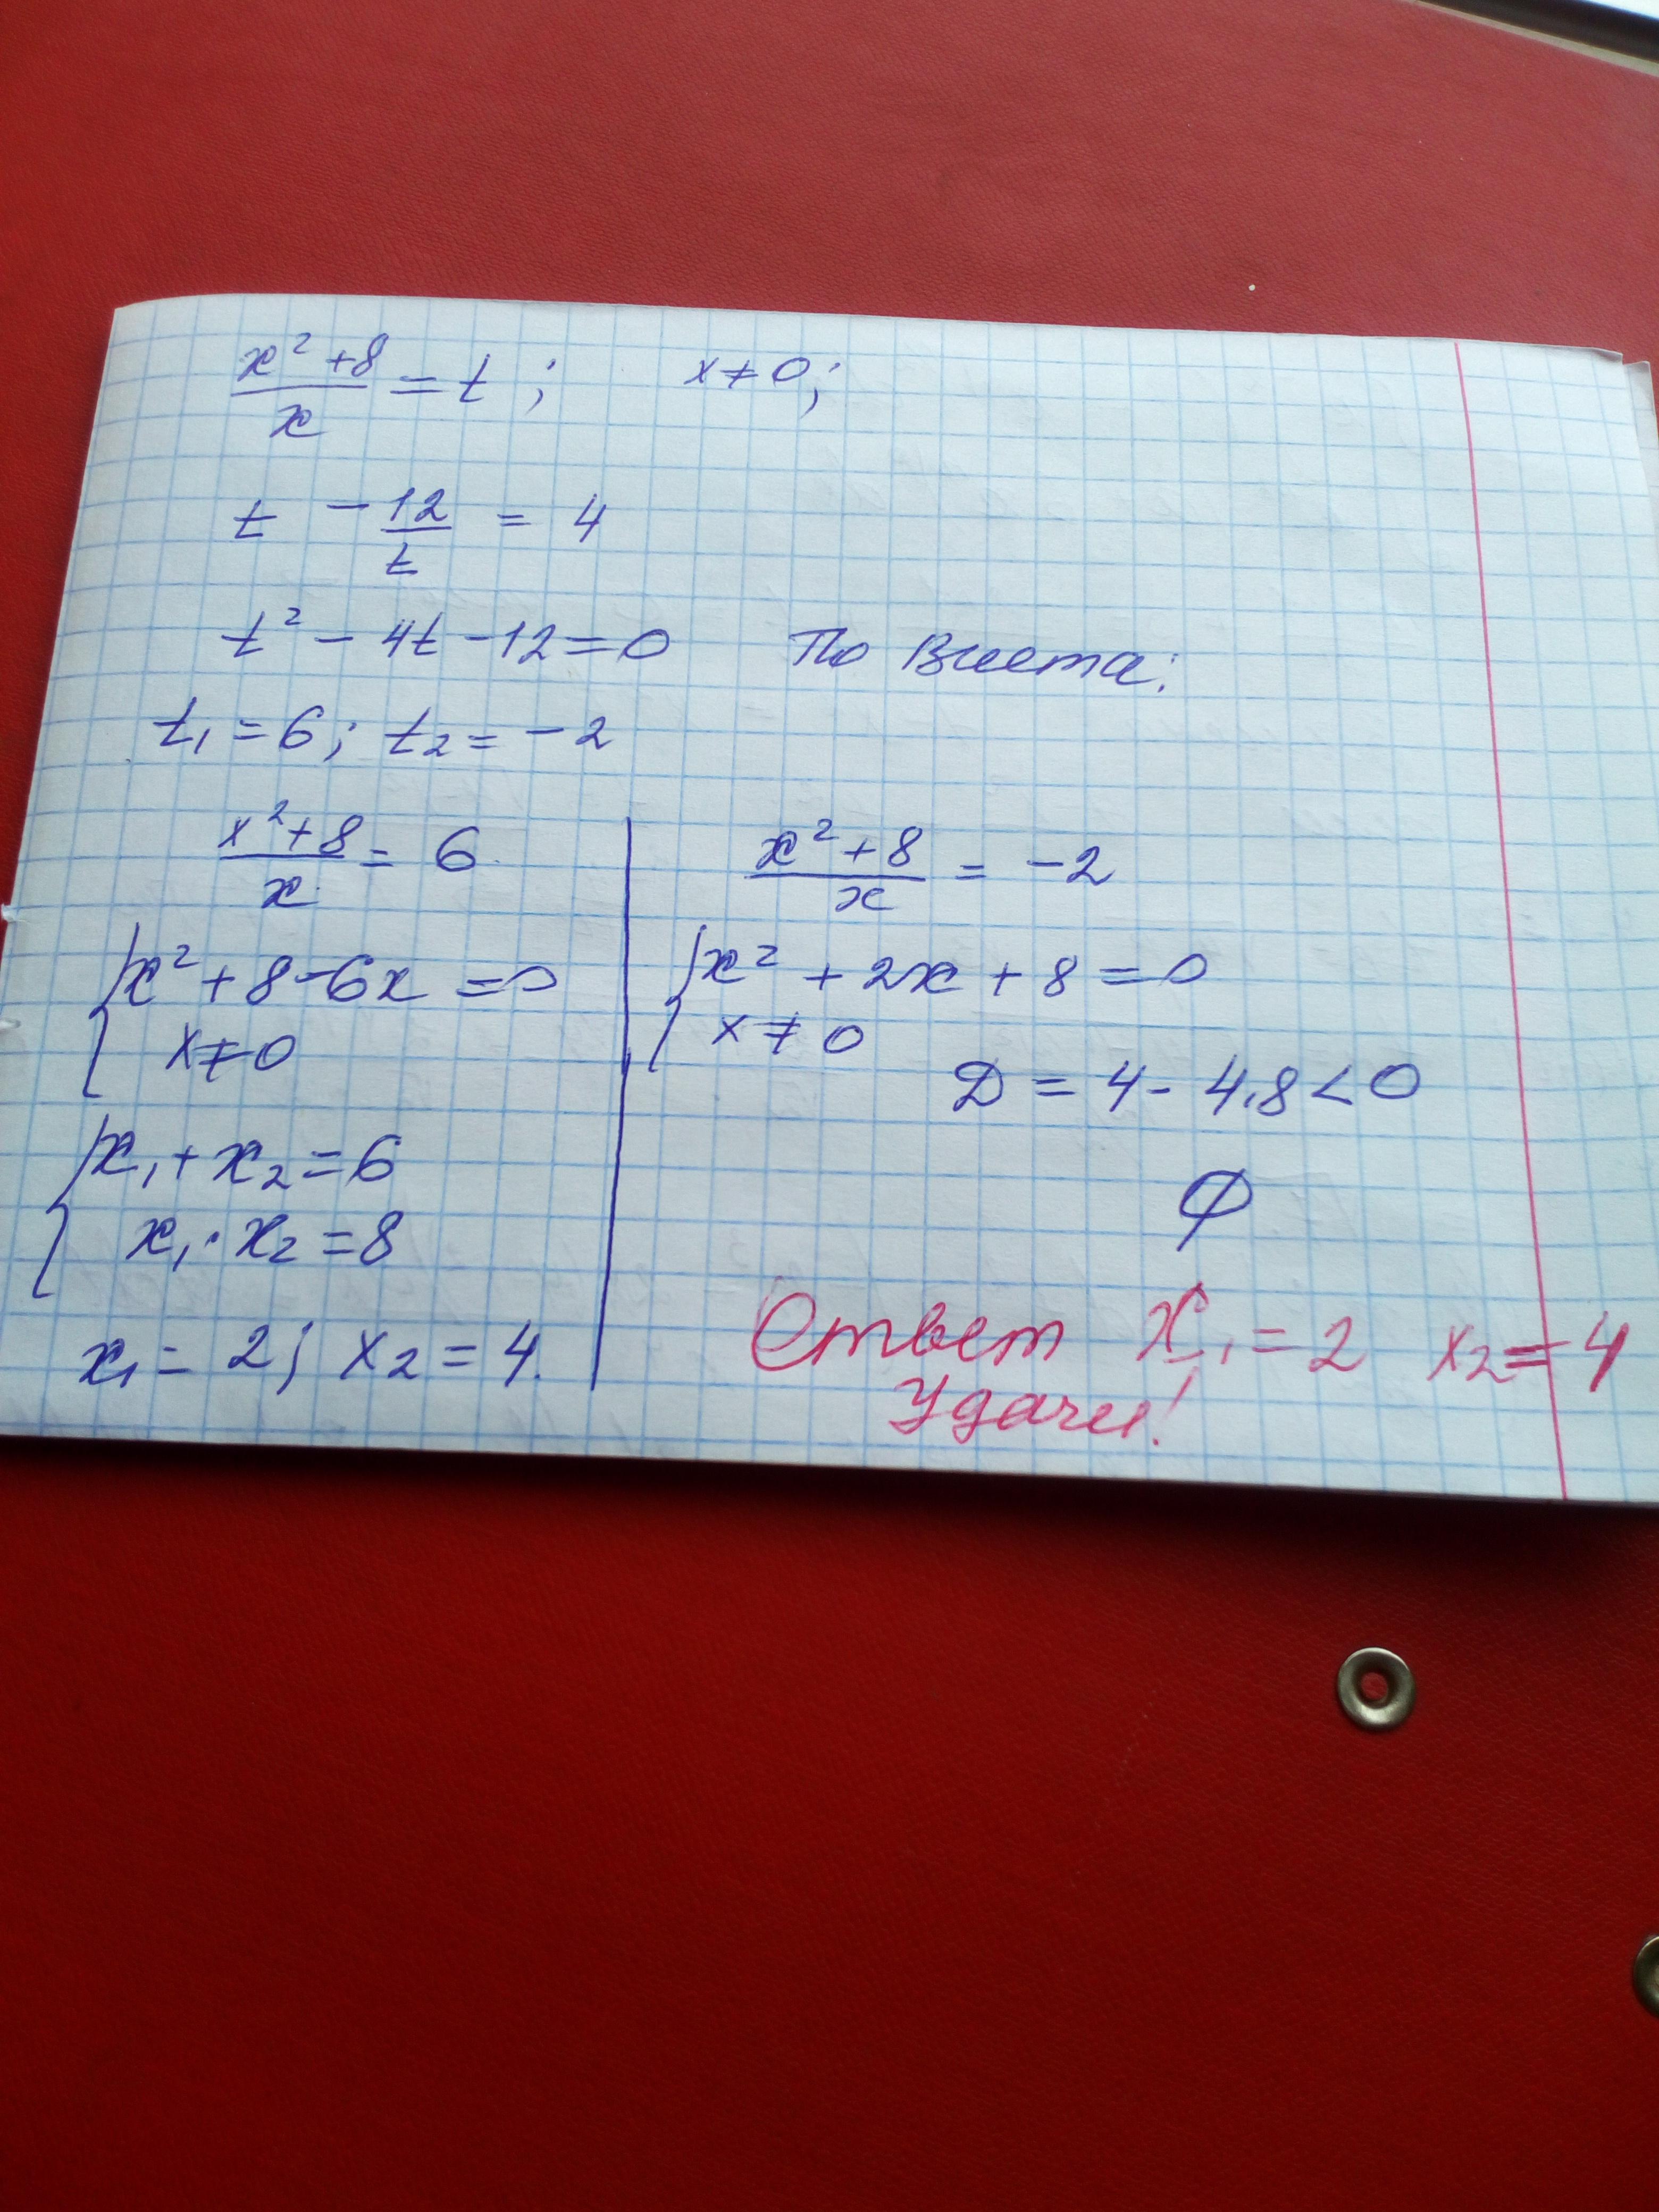 x² + 8 / x = t ; x ≠ 0;
t - 12 / t = 4
t² - 4t - 12 = 0 По Виета:
t₁ = 6; t₂ = -2
x² + 8 / x = 6
{ x² + 8 - 6x = 0
x ≠ 0
{ x₁ + x₂ = 6
x₁ · x₂ = 8
x₁ = 2; x₂ = 4.
x² + 8 / x = -2
{ x² + 2x + 8 = 0
x ≠ 0
Д = 4 - 4.8 < 0
∅
Ответ x₁ = 2 x₂ = 4
Удачи!